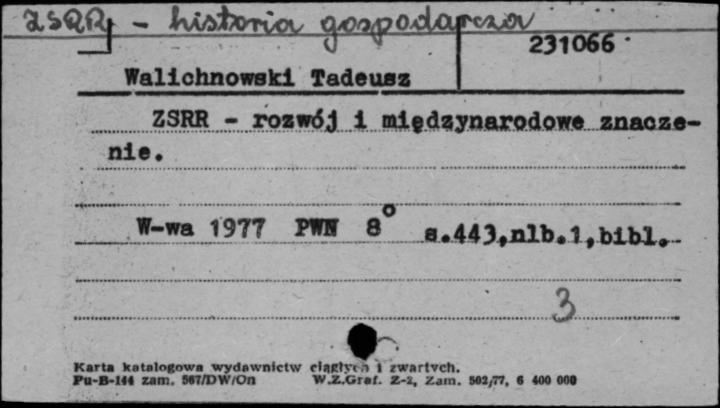 ZSRR - historia gospodarcza
231066
Walichnowski Tadeusz
ZSRR - rozwój i międzynarodowe znacze-
nie.
W-wa 1977 PWN 8° s.443,nlb.1,bibl.
3
Karta katalogowa wydawnictw ciągłych i zwartych.
Pu-B-144 zam. 567/DW/On W.Z.Graf. Z-2, Zam. 502/77, 6 400 000